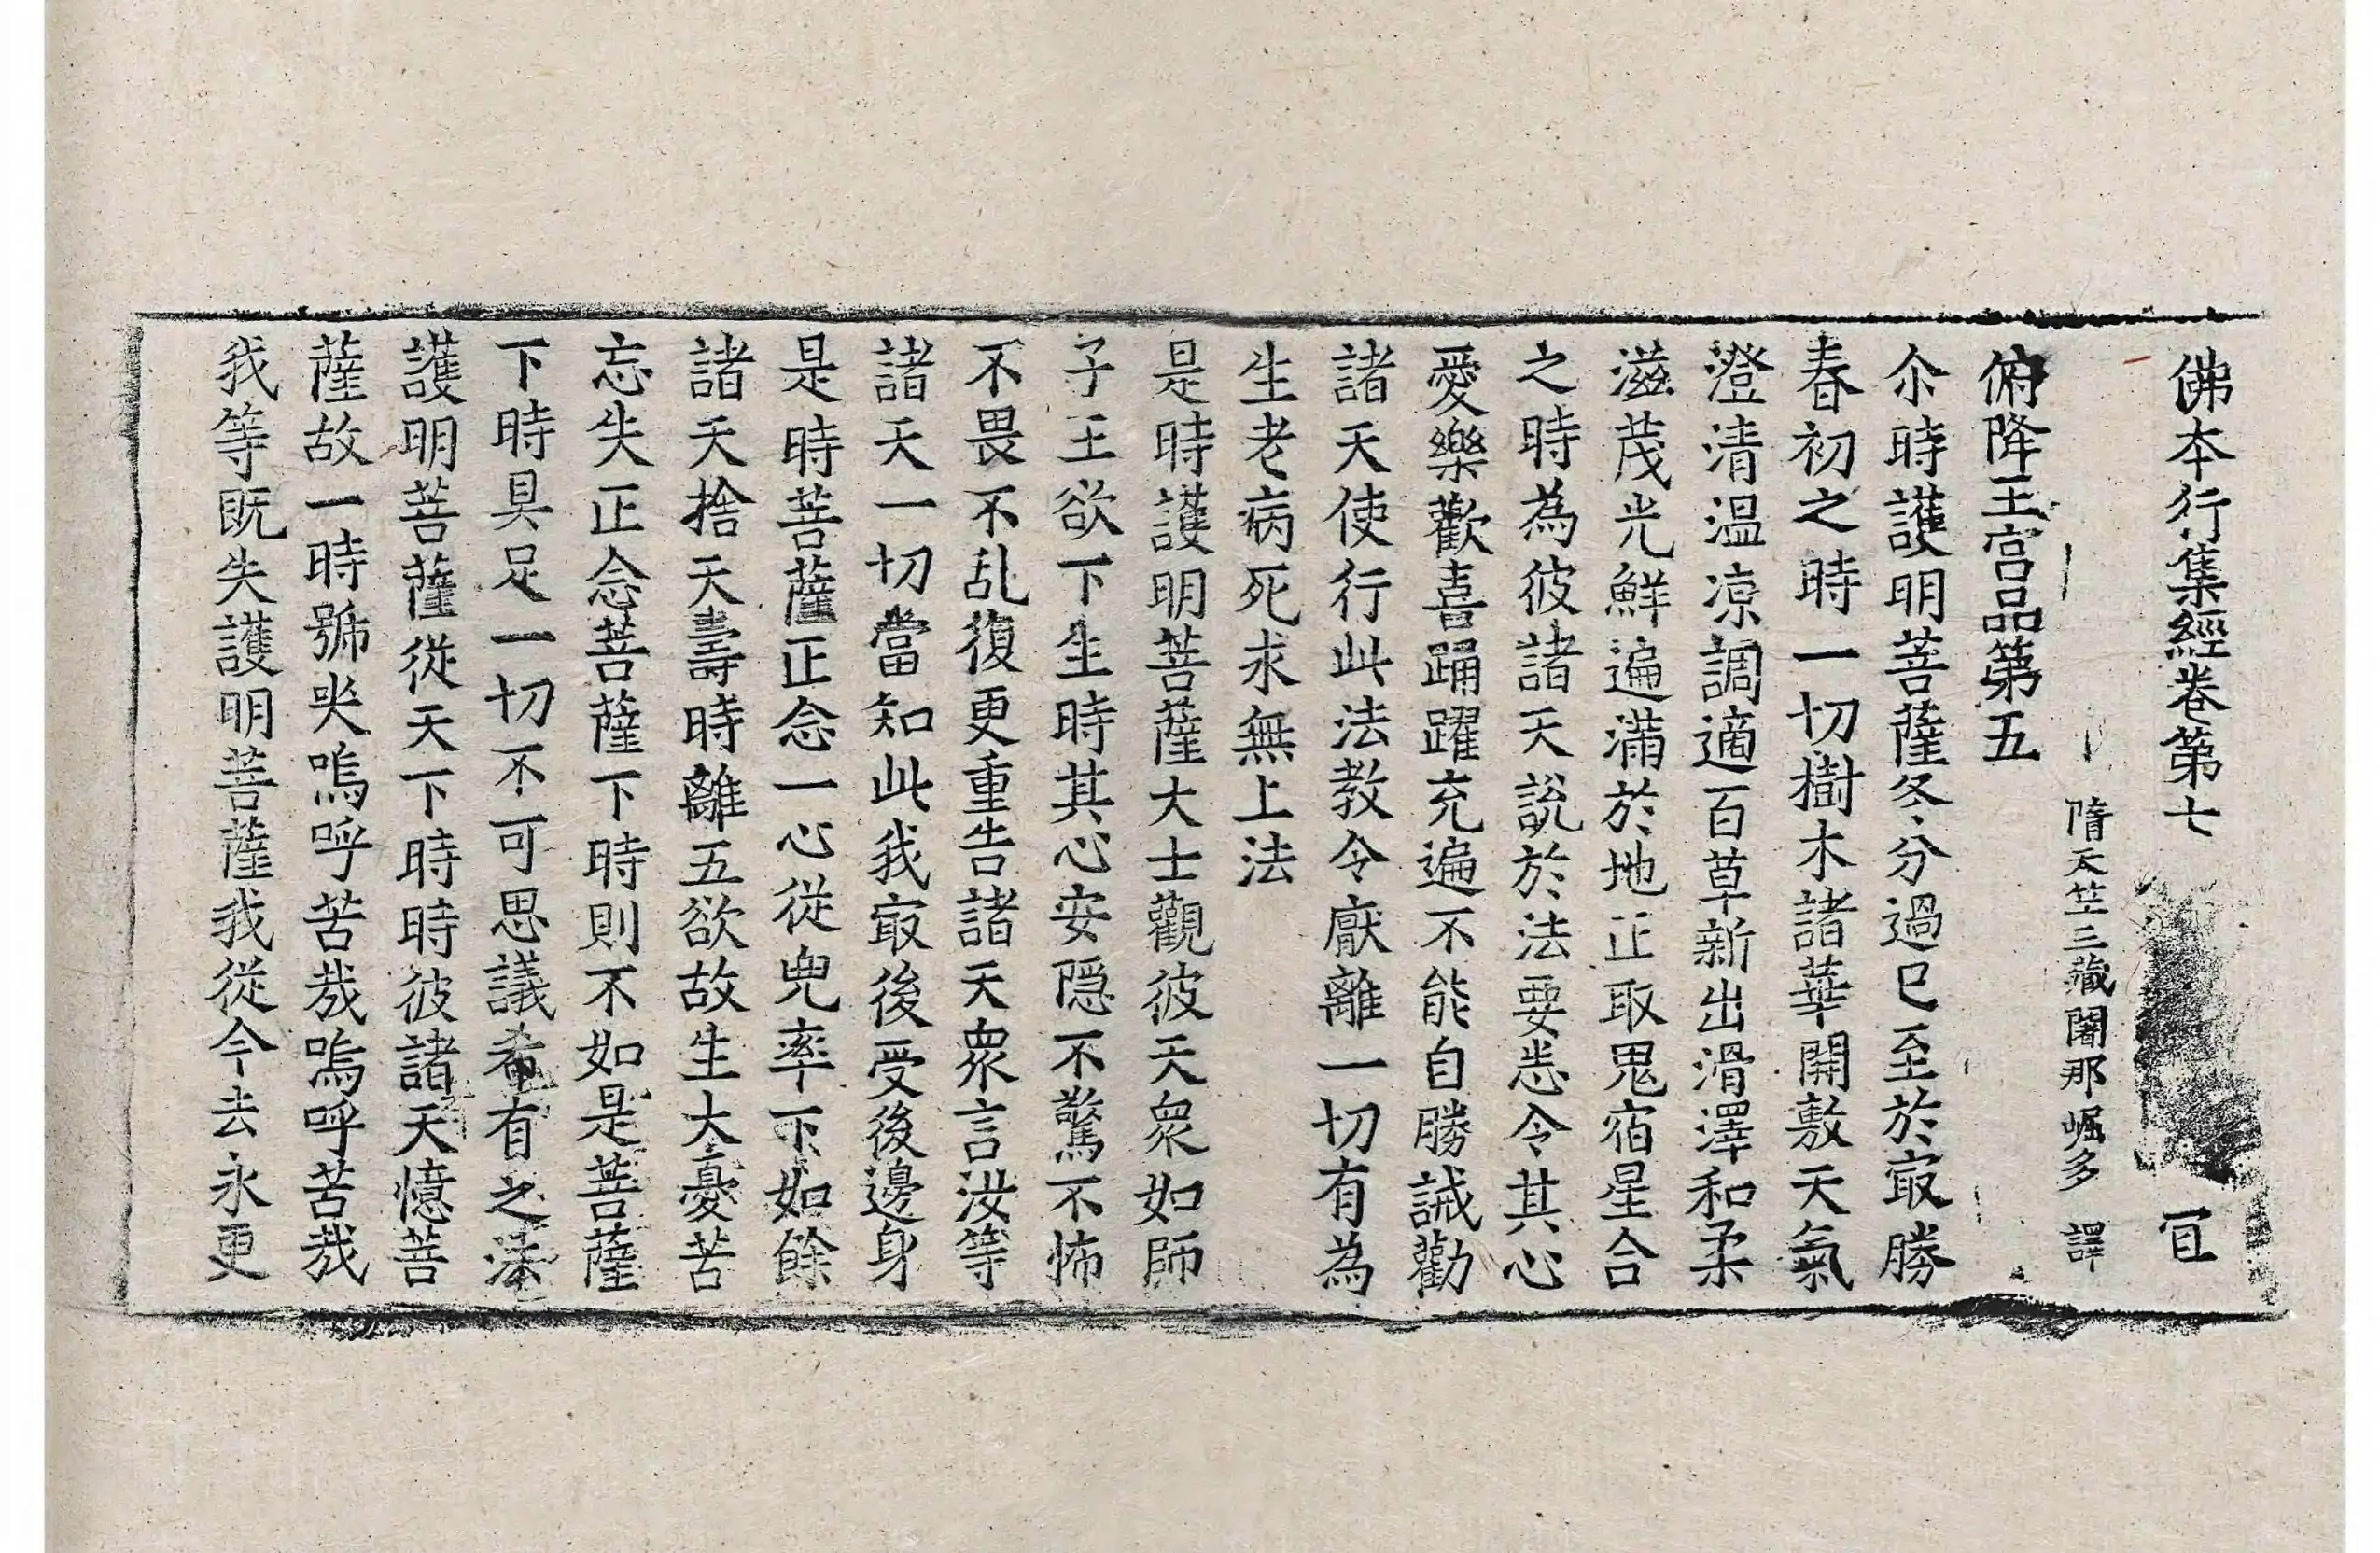 佛本行集經卷第七 冝
隋天竺三藏闍那崛多 譯
俯降王宮品第五
尒時護明菩薩冬分過已至於㝡勝
春初之時一切樹木諸華開敷天氣
澄清温凉調適百草新出滑澤和柔
滋茂光鮮遍滿於地正取鬼宿星合
之時為彼諸天說於法要悉令其心
愛樂歡喜踊躍充遍不能自勝誡勸
諸天使行此法教令厭離一切有為
生老病死求無上法
是時護明菩薩大士觀彼天衆如師
子王欲下生時其心安隠不驚不怖
不畏不乱復更重告諸天衆言汝等
諸天一切當知此我㝡後受後邊身
是時菩薩正念一心從兜率下如餘
諸天捨天壽時離五欲故生大憂苦
忘失正念菩薩下時則不如是菩薩
下時具足一切不可思議希有之法
護明菩薩從天下時時彼諸天憶菩
薩故一時號哭嗚呼苦哉嗚呼苦哉
我等既失護明菩薩我從今去永更